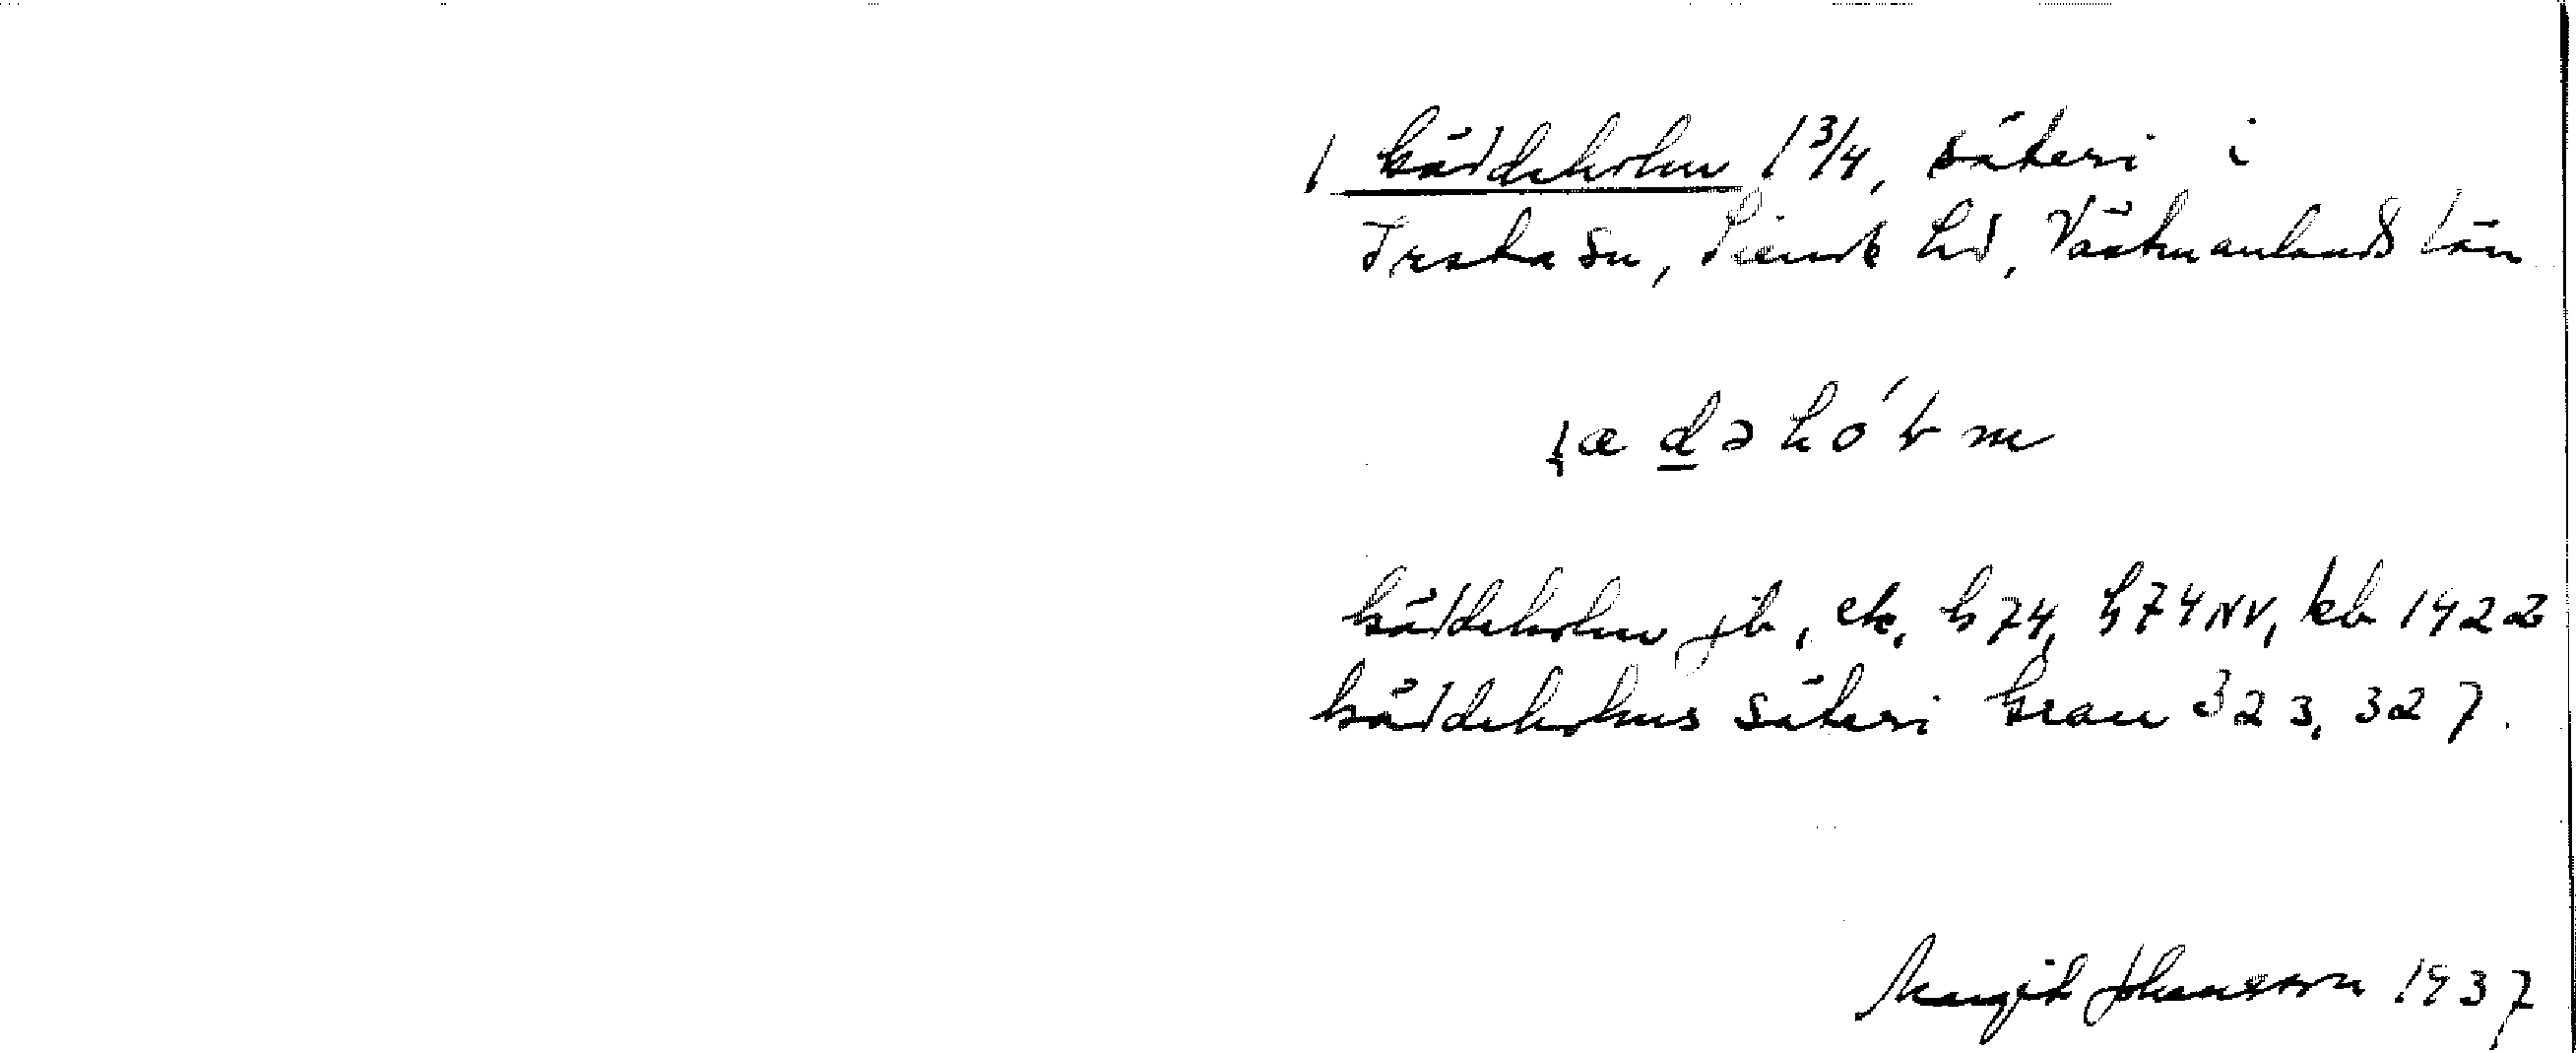 1 Käddeholm 1 3/4, säteri i
Irsta sn, Siende hd, Västmanlands län
ꞔædəhól m
Käddeholm jb, ek, h74, h74NV, kb 1922
Käddeholms säteri Grau 323, 327.
Margit Johansson 1937